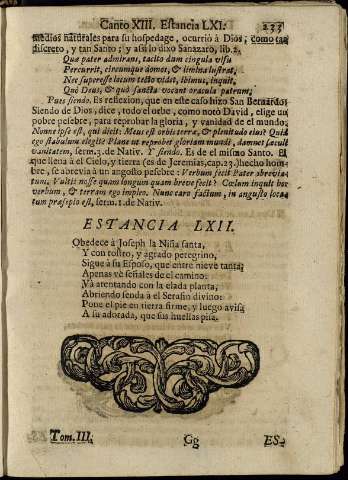 Canto XIII. Estancia LXI. 233
medios naturales para su hospedage, ocurriò à Dios, como tan
discreto, y tan Santo; y assi lo dixo Sanazaro, lib. 2.
Quæ pater admirans, tacito dum cingula visu
Percurrit, circumque domos, & limina lustrat,
Nec superesse locum tecto videt, ibimus, inquit,
Quò Deus, & quò sancta vocant oracula patrum;
Pues siendo. Es reflexion, que en este caso hizo San Bernardo:
Siendo de Dios, dice, todo el orbe, como notò David, elige un
pobre pesebre, para reprobar la gloria, y vanidad de el mundo:
Nonne ipse est, qui dicit: Meus est orbis terræ, & plenitudo eius? Quid
ergo stabulum elegit? Planè ut reprobet gloriam mundi, damnet sæculi
vanitatem, serm. 3. de Nativ. Y siendo. Es de el mismo Santo. El
que llena à el Cielo, y tierra (es de Jeremias, cap. 23.) hecho hom-
bre, se abrevia à un angosto pesebre: Verbum fecit Pater abrevia-
tum, Vultis nosse quam longum quam breve fecit? Cœlum inquit hoc
verbum, & terram ego impleo. Nunc caro factum, in angusto loca-
tum præsepio est, serm. 1. de Nativ.
ESTANCIA LXII.
Obedece à Joseph la Niña santa,
Y con rostro, y agrado peregrino,
Sigue à su Esposo, que entre nieve tanta,
Apenas vè señales de el camino:
Và atentando con la elada planta,
Abriendo senda à el Serafin divino:
Pone el pie en tierra firme, y luego avisa
A su adorada, que sus huellas pisa.
Tom. III. Gg ES-